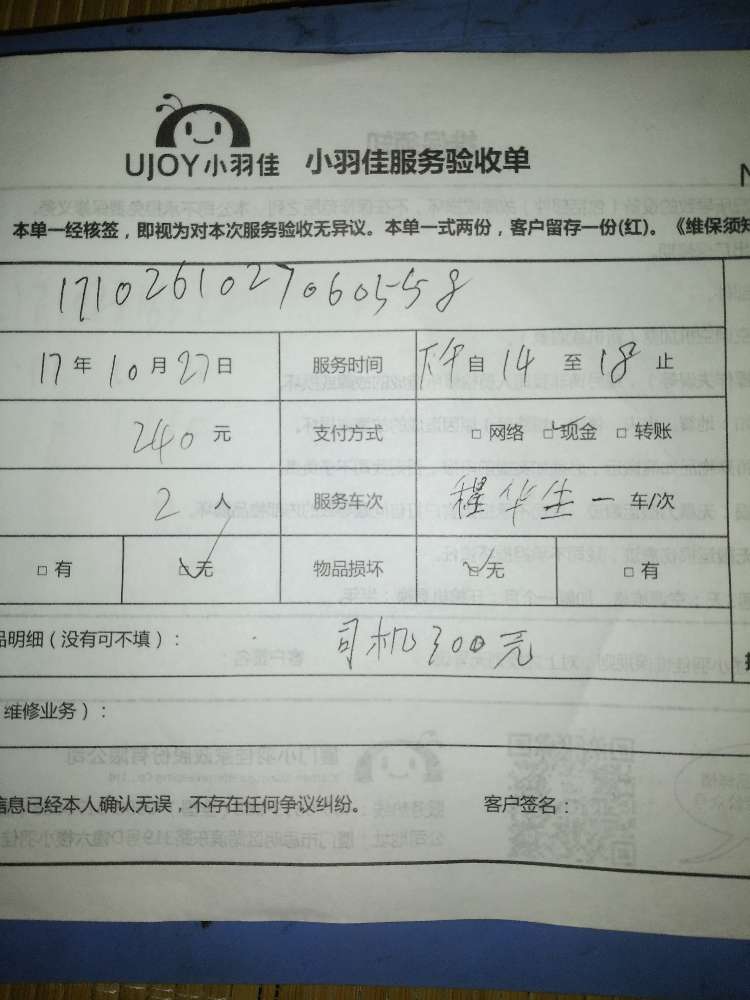 UJOY小羽佳 小羽佳服务验收单
N
本单一经核签，即视为对本次服务验收无异议。本单一式两份，客户留存一份(红)。《维保须知
1710261027060558
17年10月27日 服务时间 下午自14至18止
240元 支付方式 □网络 ☑现金 □转账
2人 服务车次 华生一车/次
□有 ☑无 物品损坏 ☑无 □有
品明细（没有可不填）： 司机300元
维修业务）：
信息已经本人确认无误，不存在任何争议纠纷。 客户签名：